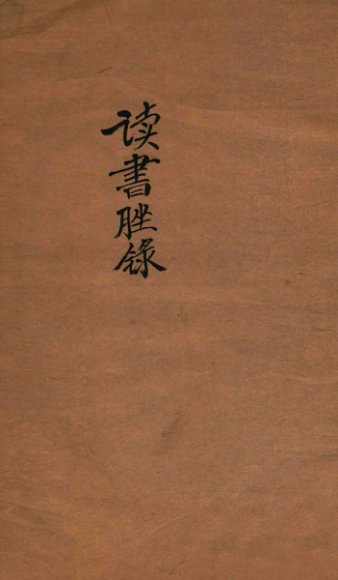 读書脞錄